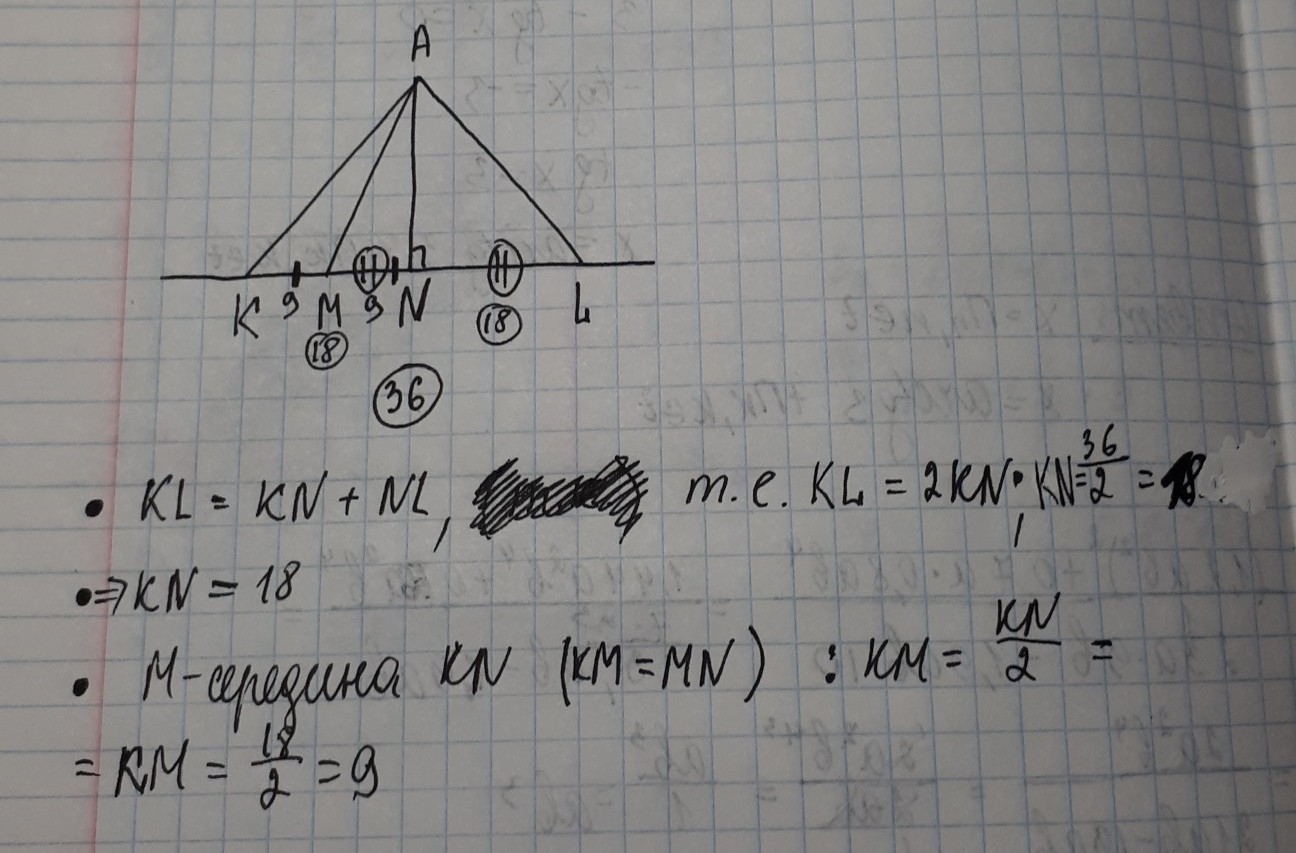 A
K 9 M 9 N L
18 18
36
• KL = KN + NL, т.е. KL = 2KN, KN = 36/2 = 18
• ⇒ KN = 18
• M-середина KN (KM = MN) : KM = KN/2 =
= KM = 18/2 = 9